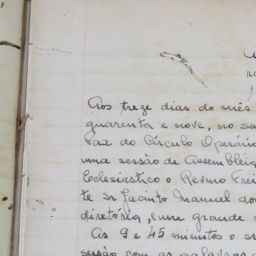 Aos treze dias do mês
quarenta e nove, no sa
Paz do Círculo Operário
uma sessão de Assemblei
Eclesiastico o Revmo Frei
te Sr Jacinto Manuel do
diretoria, e um grande
As 9 e 45 minutos o sr
sessão com as palavras